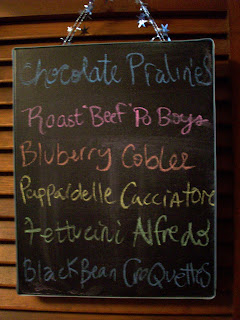 Chocolate Pralines
Roast "Beef" Po Boys
Bluberry Cobler
Pappardelle Cacciatore
Fettucini Alfredo
Black Bean Croquettes